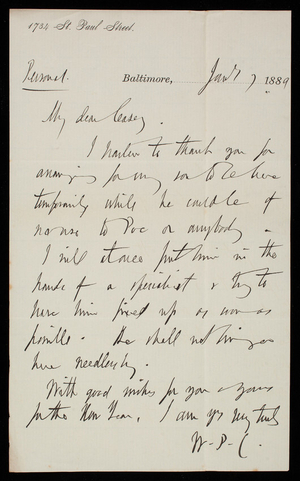 1734 St. Paul Street.
Personal.
Baltimore, Jan'y 7 1889
My dear Casey.
I hasten to thank you for
arranging for my son to be here
temporarily while he could be of
no use to Poe or anybody -
I will at once put him in the
hands of a specialist & try to
have him fixed up as soon as
possible. He shall not linger
here needlessly.
With good wishes for you & yours
for the New Year, I am yrs very truly
W-P-C.